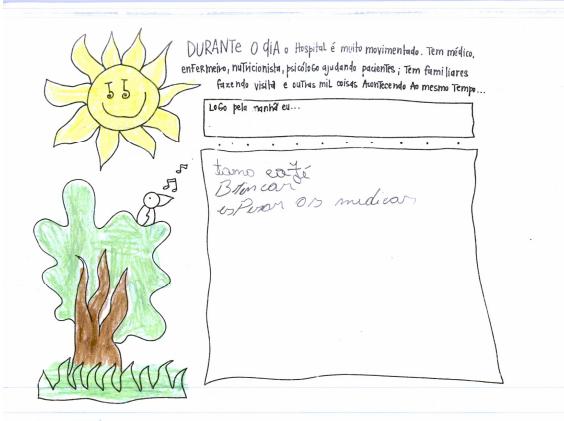 DURANTE O diA o Hospital é muito movimentado. Tem médico,
enfermeiro, nutricionista, psicólogo ajudando pacientes; Tem familiares
fazendo visita e outras mil coisas Acontecendo Ao mesmo Tempo...
Logo pela manhã eu...
tamo café
Brincar
esperar os medicos